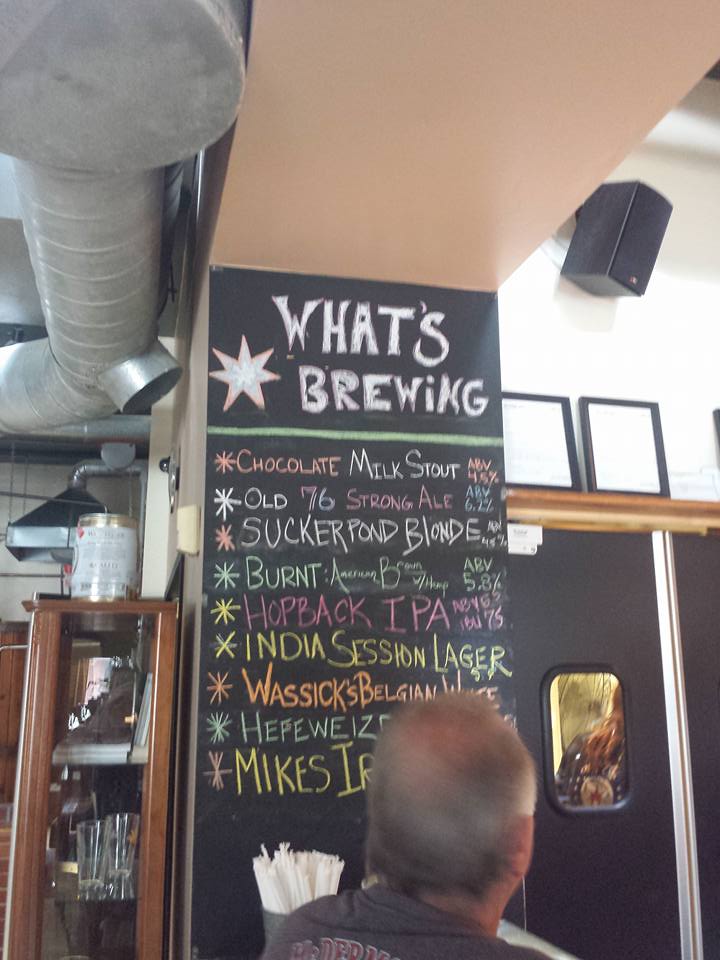 WHAT'S
BREWING
CHOCOLATE MILK STOUT ABV 4.5%
OLD 76 STRONG ALE ABV 6.2%
SUCKERPOND BLONDE ABV
BURNT: American Brown w/Hemp ABV 5.8%
HOPBACK IPA ABV 6.3 IBU 75
INDIA SESSION LAGER
WASSICK'S BELGIAN
HEFEWEIZE
MIKES